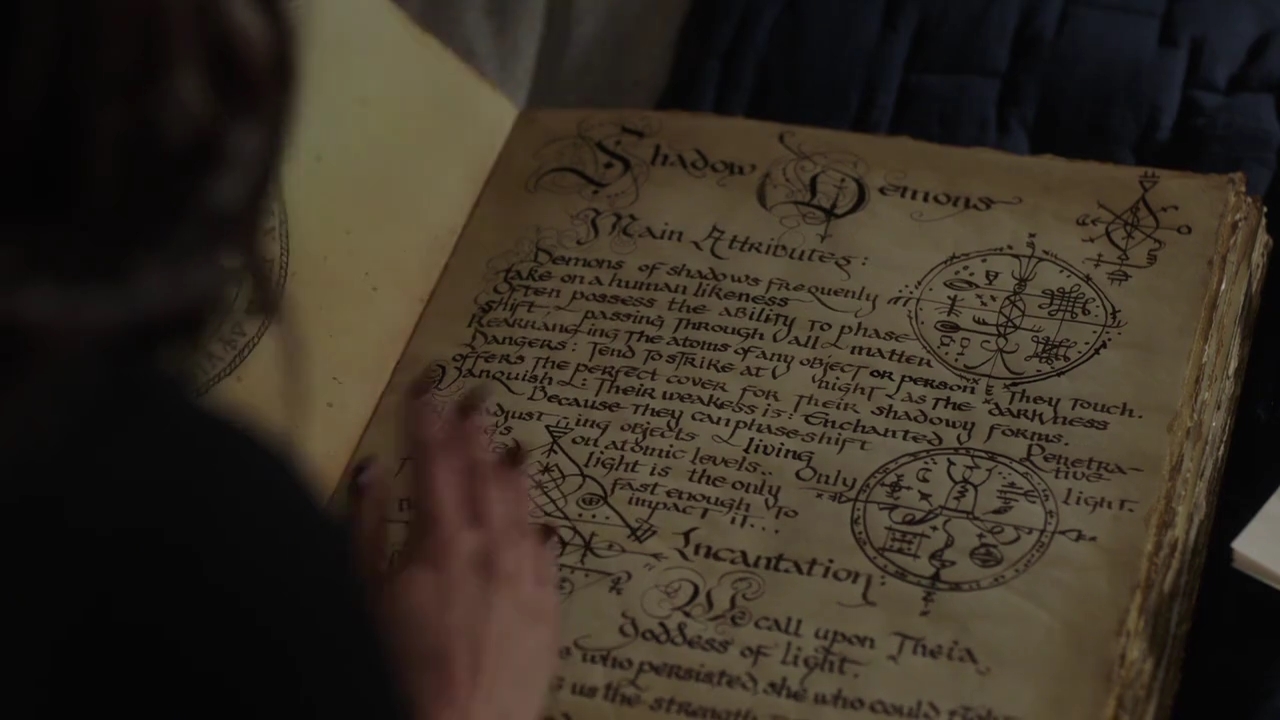 Shadow Demons
Main Attributes:
Demons of shadows frequenly
take on a human likeness
Often possess the ability to phase
shift - passing through all matter
Rearranging the atoms of any object or person They touch.
Dangers: Tend to strike at night, as the darkness
offers the perfect cover for their shadowy forms.
Vanquish: Their weakess is: Enchanted Penetra-
tive light.
Because they can phase-shift
adjust-ing objects living
on atomic levels.. Only
light is the only
fast enough to
impact it...
Incantation:
We call upon Theia,
Goddess of light.
who persisted, she who could
us the strength